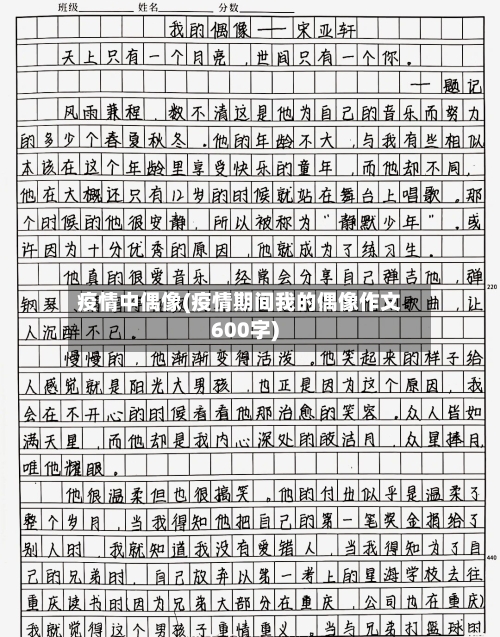 班级 姓名 分数
我的偶像——宋亚轩
天上只有一个月亮，世间只有一个你。
— 题记
风雨兼程，数不清这是他为自己的音乐而努力
的多少个春夏秋冬。他的年龄不大，与我有些相似
本该在这个年龄里享受快乐的童年，而他却不同，
他在大概还只有12岁的时候就站在舞台上唱歌。那
个时候的他很安静，所以被称为“静默少年”。或
许因为十分优秀的原因，他就成为了练习生。
他真的很爱音乐，经常会分享自己弹吉他，弹
220
钢琴 歌曲，让
疫情中偶像(疫情期间我的偶像作文
600字)
人沉醉不已。
慢慢的，他渐渐变得活泼。他笑起来的样子给
人感觉就是阳光大男孩，也正是因为这个原因，我
会在不开心的时候看看他那治愈的笑容。众人皆如
满天星，而他却是我内心深处的皎洁月，众星捧月，
唯他耀眼。
他很温柔但也很搞笑。他的付出似乎是温柔了
整个岁月，当我得知他把自己的第一笔奖金捐给了
别人时，我就知道我没有爱错人，当我得知为了自
440
己的兄弟时，自己放弃以第一考上的星海学校去往
重庆读书时(因为兄弟大部分在重庆，公司也在重庆)
我就觉得这个男孩子重情重义。当与兄弟打篮球时